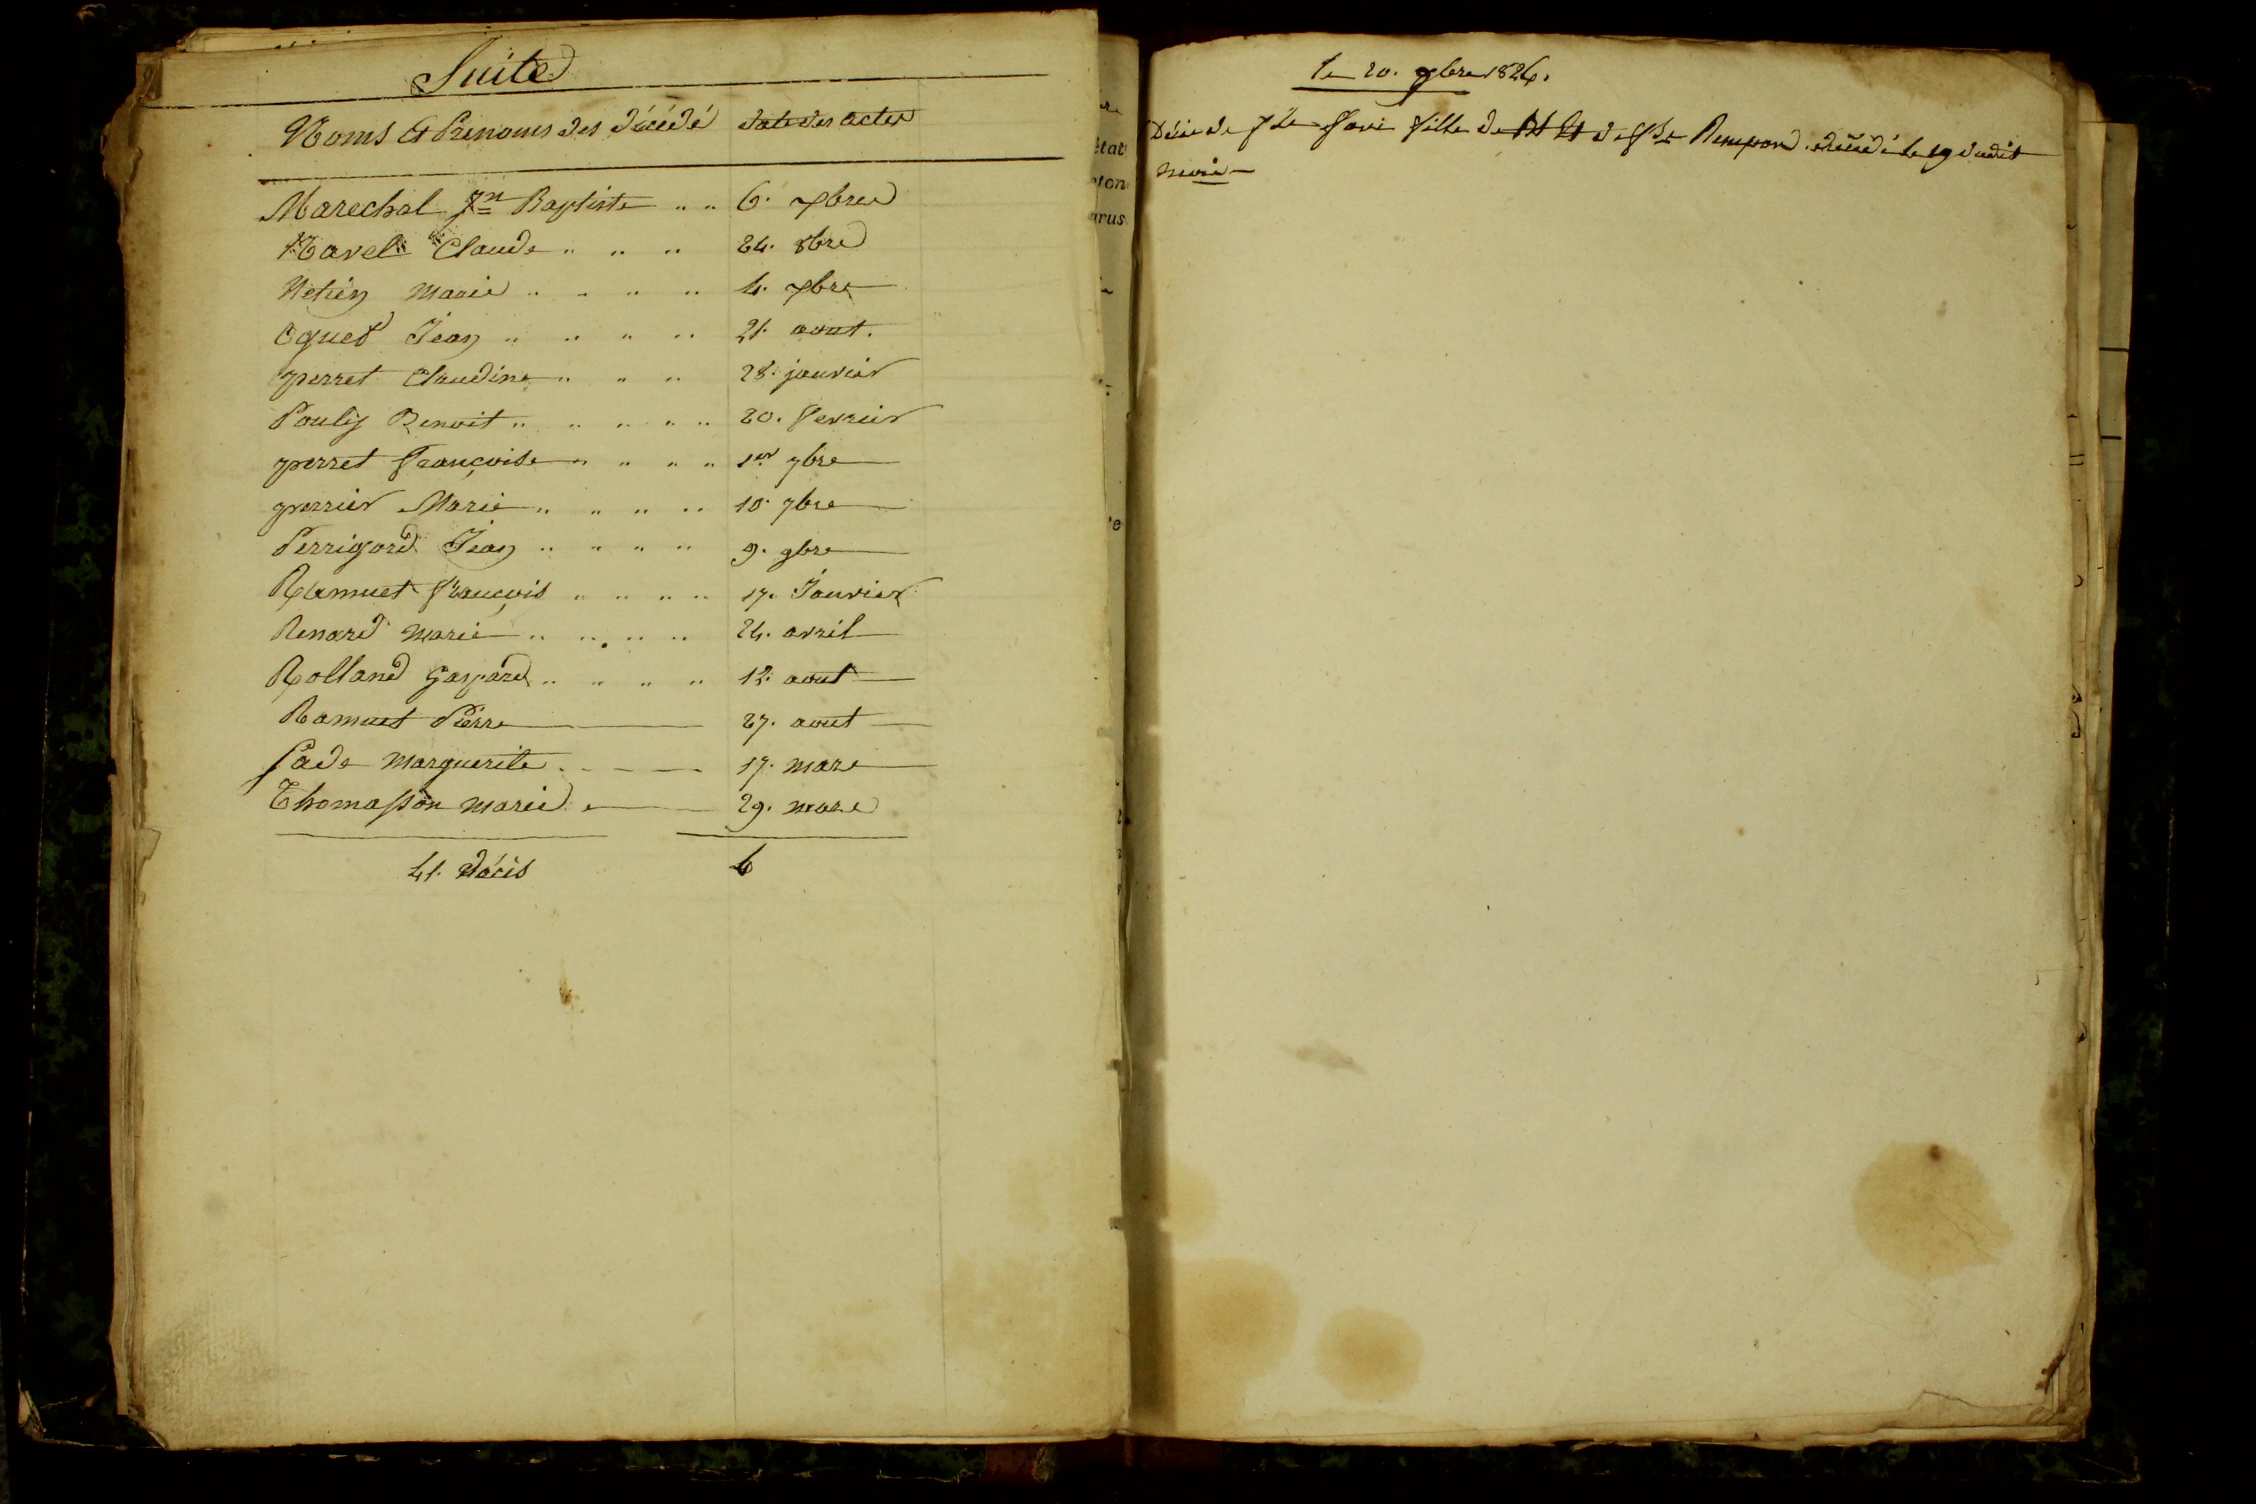 Suite
Noms Et Prenoms des décédé date des actes
Marechal Jn Baptiste " " 6. xbre
Navel Claude " " " 24. 8bre
Marie " " " " 4. xbre
Oguet Jean " " " " 21. aout.
perret Claudine " " " 28. janvier
Pouly Benoit " " " " " 20. fevrier
perret françoise " " " " 1er 7bre
perrier Marie " " " " 10. 7bre
Perrigord Jean " " " " 9. 9bre
Ramuet françois " " " " 17. Janvier
Renard marie " " " " 24. avril
Rolland Gaspard " " " " 12. aout
Ramuet Pierre 27. aout
Sade marguerite 17. mars
Thomasson marie 29. mars
41. décès 6
le 20. 1824.
Décès de fille de de décédé le 19 dudit
mois